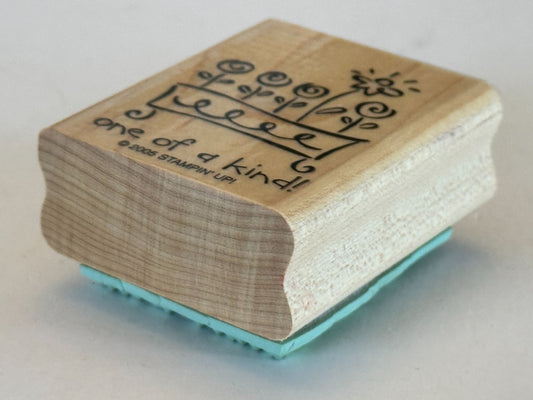 one of a kind!
© 2005 STAMPIN' UP!